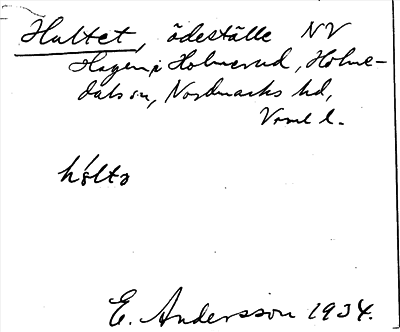 Hultet, ödeställe NV
Hagen i Holmerud, Holme-
dals sn, Nordmarks hd,
Vrml l.
hólto
E. Andersson 1934.